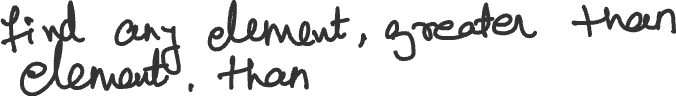 find any element, greater than
element, than